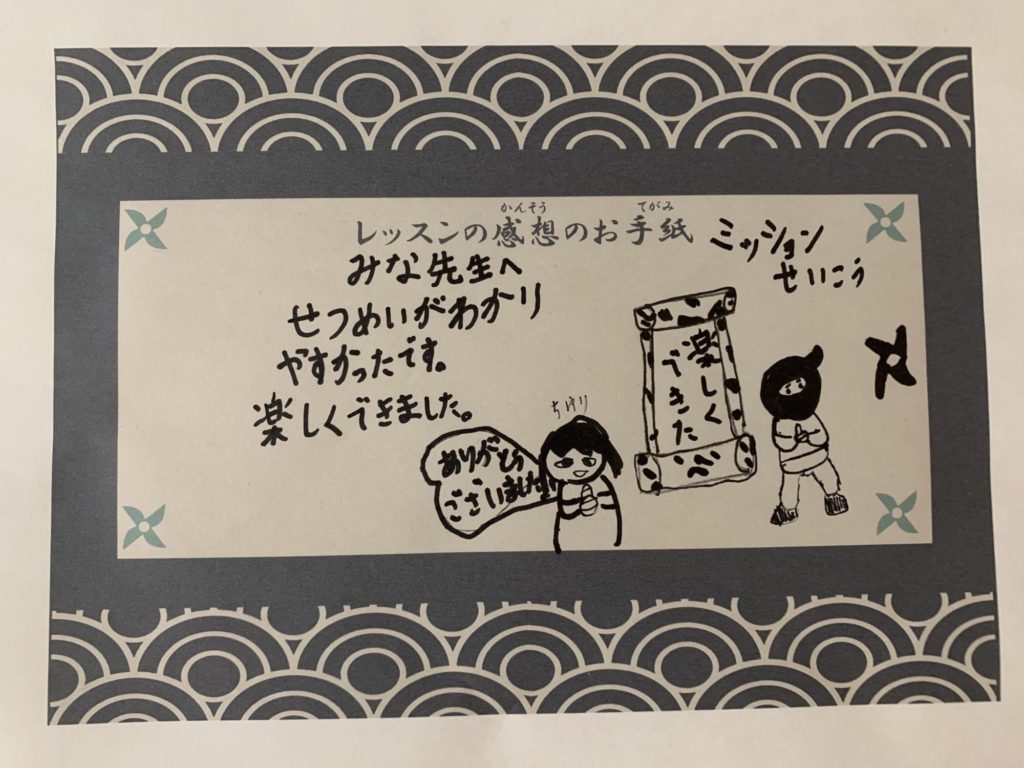 かんそう てがみ
レッスンの感想のお手紙
みな先生へ
せつめいがわかり
やすかったです。
楽しくできました。
ミッション
せいこう
楽しく
できた
ちほり
ありがとう
ございました!!